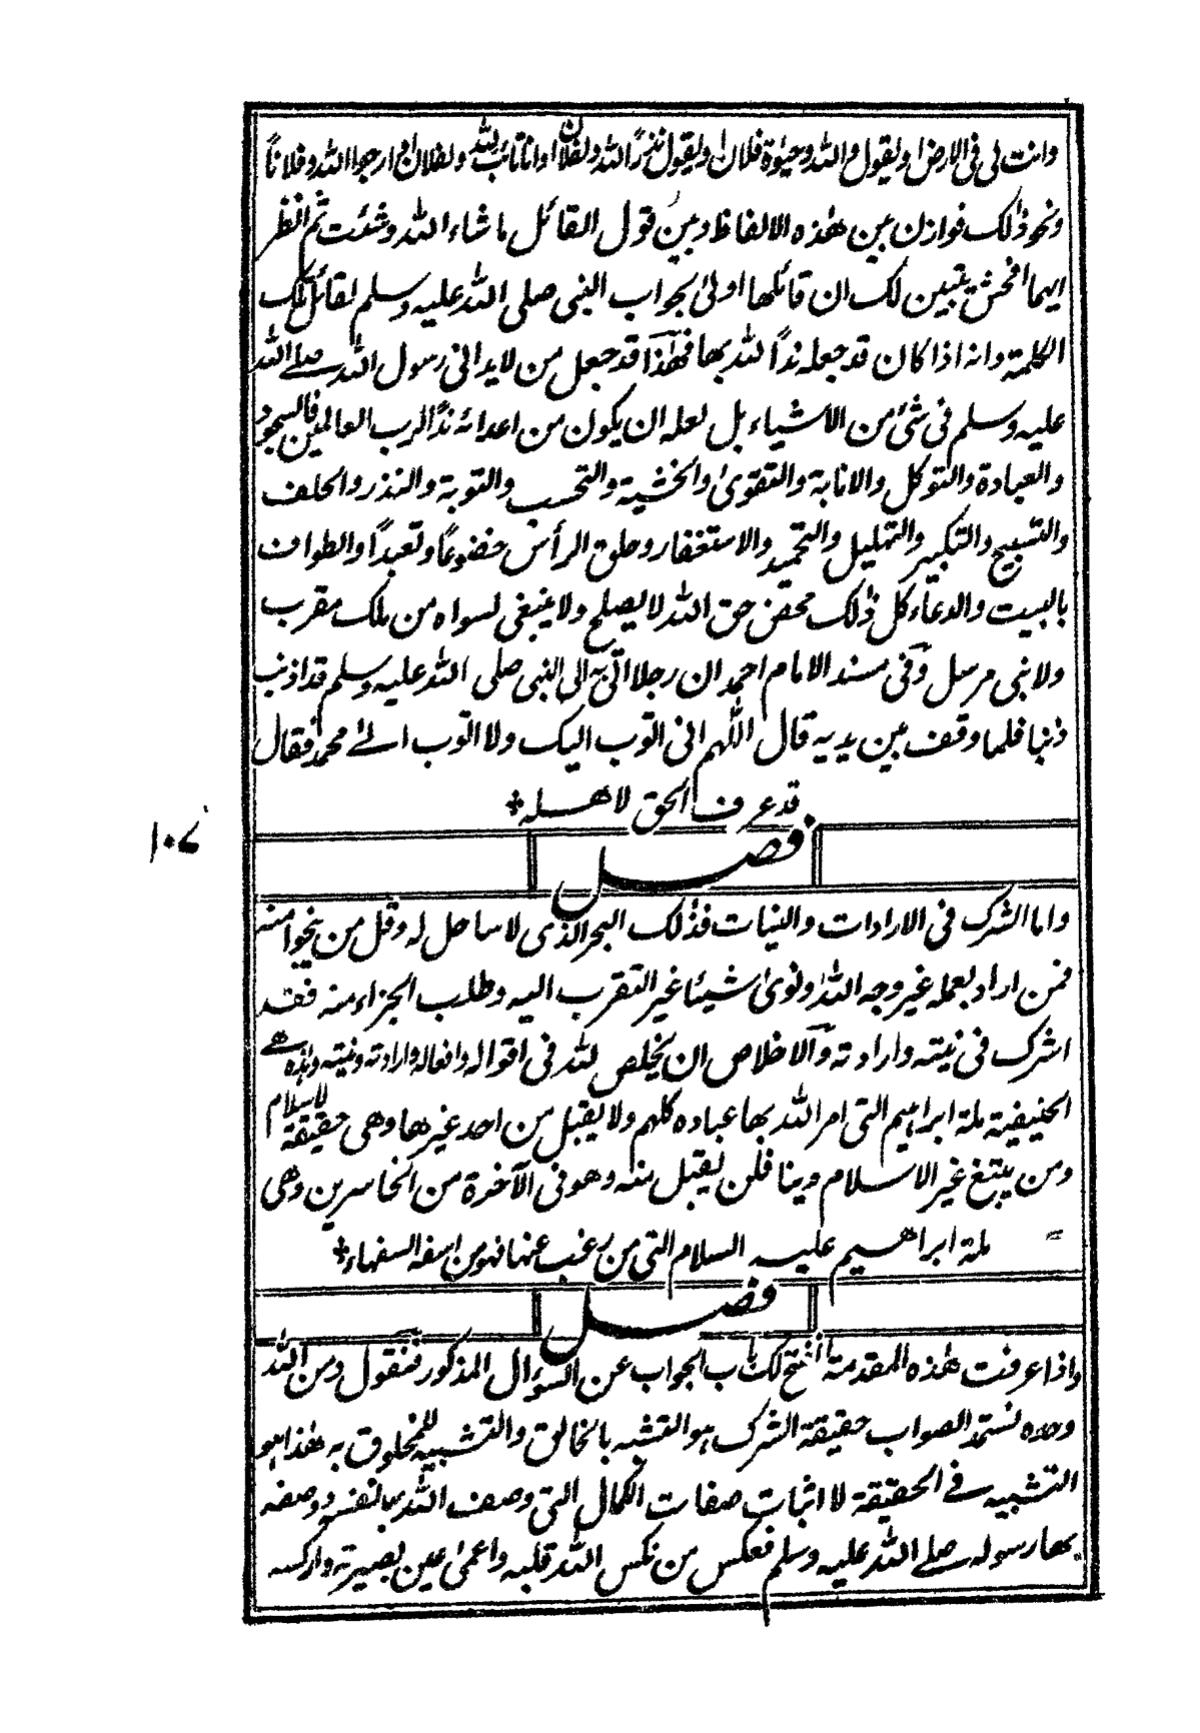 وانت لى فى الارض او يقول والله وحيوة فلان او يقول نذرًا لله ولفلان او انا تائب لله ولفلان او ارجوا الله وفلانًا
ونحو ذلك فوازن بين هذه الالفاظ وبين قول القائل ما شاء الله وشئت ثم انظر
ايهما افحش يتبين لك ان قائلها اولى بجواب النبى صلى الله عليه وسلم لقائل تلك
الكلمة وانه اذا كان قد جعله ندًا لله بها فهذا قد جعل من لا يدانى رسول الله صلے الله
عليه وسلم فى شئ من الاشياء بل لعله ان يكون من اعدائه ندًا لرب العالمين فالسجود
والعبادة والتوكل والانابة والتقوى والخشية والتحسب والتوبة والنذر والحلف
والتسبيح والتكبير والتهليل والتحميد والاستغفار وحلق الرأس خضوعًا وتعبدًا والطواف
بالبيت والدعاء كل ذلك محض حق الله لا يصلح ولا ينبغى لسواه من ملك مقرب
ولا نبى مرسل وفى مسند الامام احمد ان رجلا اتى به الى النبى صلى الله عليه وسلم قد اذنب
ذنبا فلما وقف بين يديه قال اللهم انى اتوب اليك ولا اتوب الے محمد فقال
قد عرف الحق لاهله
١٠٧
فصل
واما الشرك فى الارادات والنيات فذلك البحر الذى لا ساحل له وقل من ينجوا منه
فمن اراد بعمله غير وجه الله او نوى شيئا غير التقرب اليه وطلب الجزاء منه فقد
اشرك فى نيته وارادته والاخلاص ان يخلص لله فى اقواله وافعاله وارادته ونيته وهذه هے
الحنيفية ملة ابراهيم التى امر الله بها عباده كلهم ولا يقبل من احد غيرها وهى حقيقة الاسلام
ومن يبتغ غير الاسلام دينا فلن يقبل منه وهو فى الآخرة من الخاسرين وهى
ملة ابراهيم عليه السلام التى من رغب عنها فهو من اسفه السفهاء
فصل
واذا عرفت هذه المقدمة انفتح لك باب الجواب عن السؤال المذكور فنقول ومن الله
وحده نستمد الصواب حقيقة الشرك هو التشبه بالخالق والتشبيه للمخلوق به هذا هو
التشبيه فے الحقيقة لا اثبات صفات الكمال التى وصف الله بها نفسه ووصفه
بها رسوله صلے الله عليه وسلم فعكس من نكس الله قلبه واعمى عين بصيرته واركسه